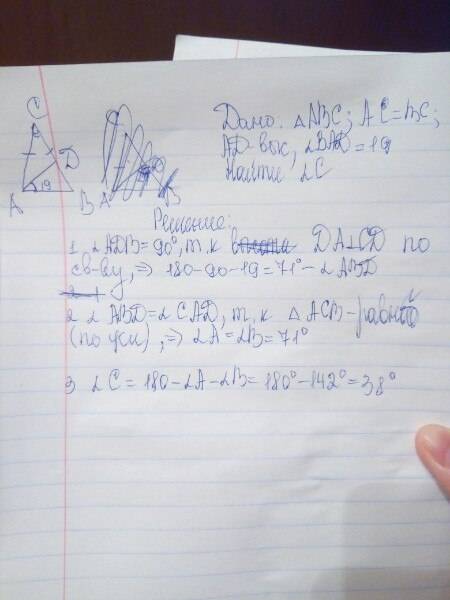 C
D
19
A B A B
Дано: △ABC; AC=BC;
AD-выс, ∠BAD=19
Найти ∠C
Решение:
1 ∠ADB=90°, т.к DA⊥CD по
св-ву, ⇒ 180-90-19=71°-∠ABD
2 ∠ABD=∠CAD, т.к △ACB-равноб
(по усл), ⇒ ∠A=∠B=71°
3 ∠C=180-∠A-∠B=180°-142°=38°